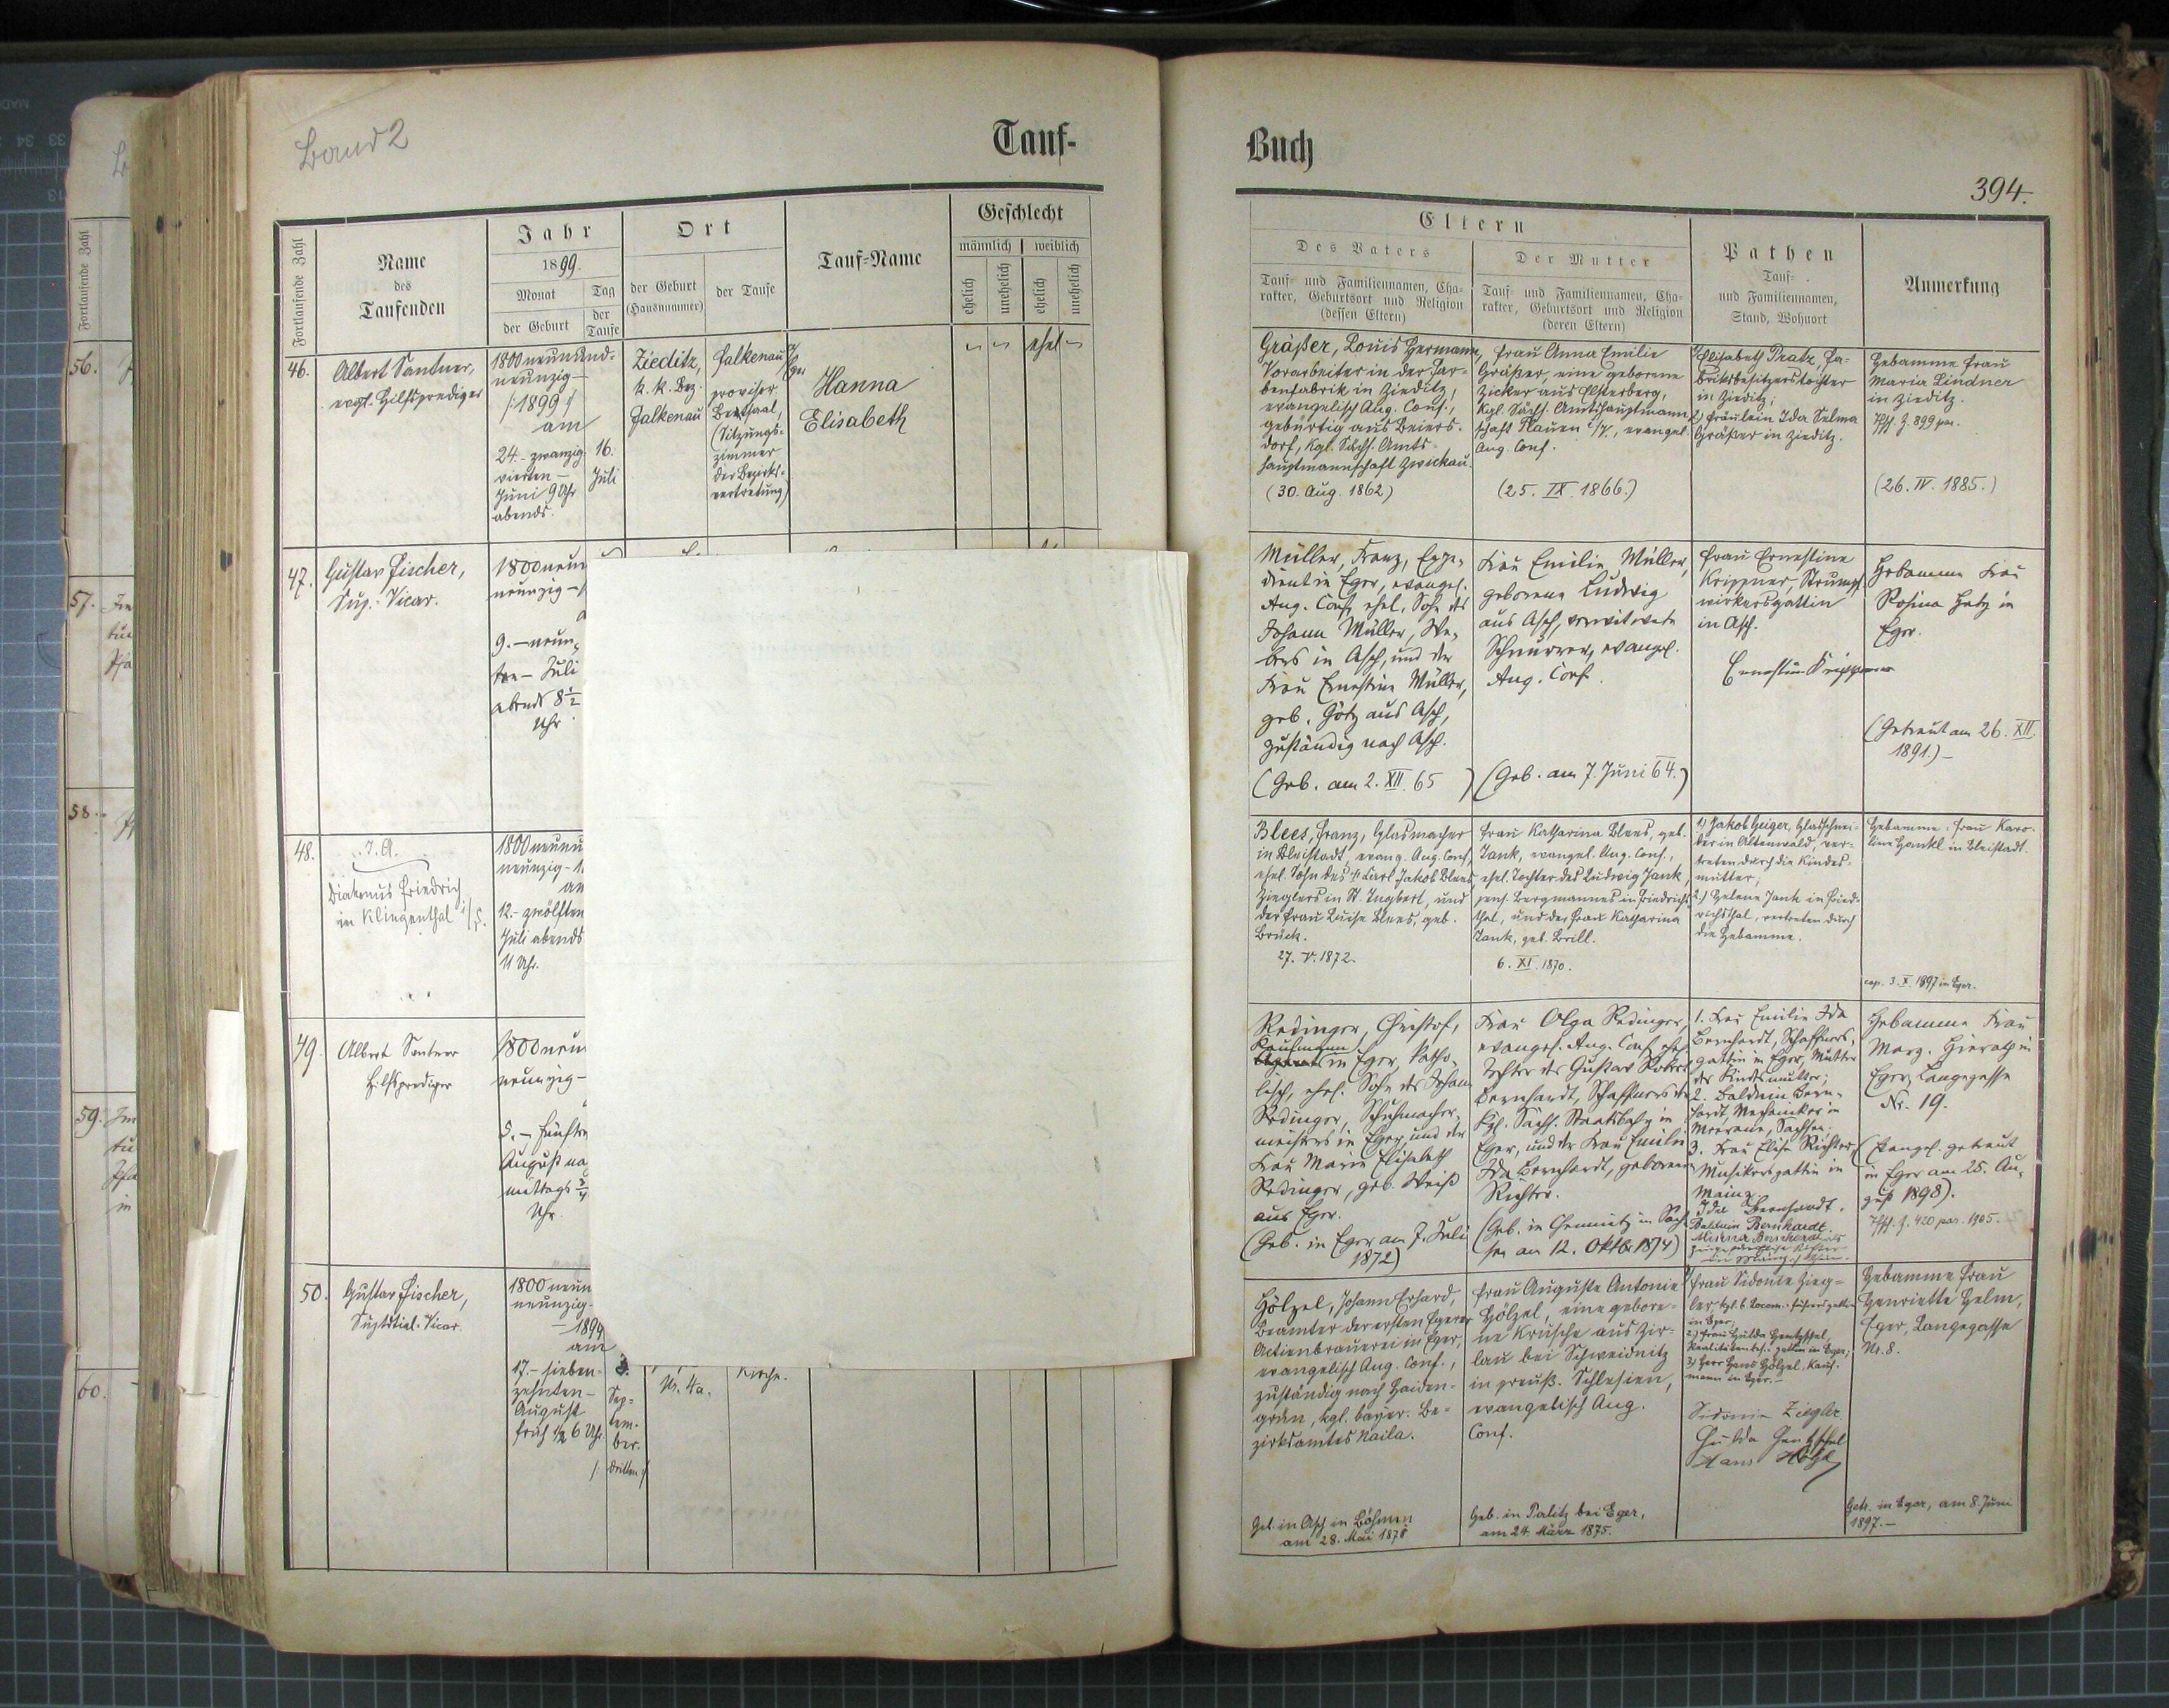 Band 2
Tauf-
Fortlaufende Zahl
Name
des
Taufenden
Jahr
1899.
Monat
der Geburt
Tag
der
Taufe
Ort
der Geburt
(Hausnummer)
der Taufe
Tauf-Name
Geschlecht
männlich
weiblich
ehelich
unehelich
ehelich
unehelich
46.
Albert Santner,
evgl. Hilfsprediger
1800 neunund-
neunzig-
/:1899:/
am
24.- zwanzig
vierten -
Juni 9 Uhr
abends.
16.
Juli
Zieditz,
k. k. Bez.
Falkenau
Falkenau
provisor
Betsaal,
(Sitzungs-
zimmer
der Bezirks-
vertretung)
Hanna
Elisabeth
ehel
47.
Gustav Fischer,
Sup. Vicar.
1800 neun
neunzig-
9. - neun
ten - Juli
abends 8 1/2
Uhr
48.
I. A.
Diakonus Friedrich
in Klingenthal i/S.
1800 neunu
neunzig-1
am
12.- zwölften
Juli abends
11 Uhr.
49.
Albert Santner
Hilfsprediger
1800 neun
neunzig-
5. - fünften
August na
mittags 3/4
Uhr.
50.
Gustav Fischer,
Suptdtial. Vicar.
1800 neun
neunzig-
-1899
am
17.- sieben-
zehnten-
August
früh 1/2 6 Uhr.
3.
Sep-
tem-
ber.
/: dritten :/
Nr. 4a.
Kirche.
56.
57.
58.
59.
60.
Buch
394.
Eltern
Des Vaters
Tauf- und Familiennamen, Cha-
rakter, Geburtsort und Religion
(dessen Eltern)
Der Mutter
Tauf- und Familiennamen, Cha-
rakter, Geburtsort und Religion
(deren Eltern)
Pathen
Tauf-
und Familiennamen,
Stand, Wohnort
Anmerkung
Gräßer, Louis Hermann,
Vorarbeiter in der Far-
benfabrik in Zieditz,
evangelisch Aug. Conf.,
gebürtig aus Beiers-
dorf, Kgl. Sächs. Amts-
hauptmannschaft Zwickau.
(30. Aug. 1862)
Frau Anna Emilie
Gräßer, eine geborene
Zicker aus Elsterberg,
Kgl. Sächs. Amtshauptmann-
schaft Plauen i/V., evangel.
Aug. Conf.
(25. IX. 1866.)
Elisabeth Pratz, Fa-
briksbesitzerstochter
in Zieditz;
2) Fräulein Ida Selma
Gräßer in Zieditz.
Hebamme Frau
Maria Lindner
in Zieditz.
(26. IV. 1885.)
Müller, Franz, Expe-
dient in Eger, evangel.
Aug. Conf, ehel. Sohn des
Johann Müller, We-
bers in Asch, und der
Frau Ernestine Müller,
geb. Götz aus Asch,
zuständig nach Asch.
(Geb. am 2. XII. 65)
Frau Emilie Müller,
geborene Ludwig
aus Asch, verwitwete
Schnürrer, evangel.
Aug. Conf.
(Geb. am 7. Juni 64.)
Frau Ernestine
Krippner, Strumpf-
wirkersgattin
in Asch.
Ernestine Krippner
Hebamme Frau
Rosina Hatz in
Eger.
(Getraut am 26. XII.
1891.)-
Blees, Franz, Glasmacher
in Bleistadt, evang. Aug. Conf,
ehel. Sohn des Carl Jakob Blees
Zieglers in St. Ingbert, und
der Frau Luise Blees, geb.
Brück.
27. V. 1872.
Frau Katharina Blees, geb.
Jank, evangel. Aug. Conf.,
ehel. Tochter des Ludwig Jank,
pens. Bergmannes in Friedrichs-
thal, und der Frau Katharina
Jank, geb. Brill.
6. XI. 1870.
1) Jakob Geiger, Glasschnei-
der in Altenwald, ver-
treten durch die Kindes-
mutter;
2.) Helene Jank in Fried-
richsthal, vertreten durch
die Hebamme.
Hebamme: Frau Karo-
line Hankl in Bleistadt.
cop. 3. X. 1897 in Eger.
Redinger, Christof,
Kaufmann
in Eger, katho-
lisch, ehel. Sohn des Johann
Redinger, Schuhmacher-
meisters in Eger, und der
Frau Marie Elisabeth
Redinger, geb. Weiß
aus Eger.
(Geb. in Eger am 7. Juli
1872)
Frau Olga Redinger,
evangel. Aug. Conf, ehel
Tochter des Gustav Robert
Bernhardt, Schaffners der
Kgl. Sächs. Staatsbahn in
Eger, und der Frau Emilie
Ida Bernhardt, geborene
Richter.
(Geb. in Chemnitz in Sach-
sen am 12. Oktbr 1874)
1. Frau Emilie Ida
Bernhardt, Schaffners-
gattin in Eger, Mutter
der Kindsmutter;
2. Balduin Bern-
hardt, Mechaniker in
Meerane, Sachsen.
3. Frau Elise Richter,
Musikersgattin in
Mainz.
Ida Bernhardt.
Balduin Bernhardt.
Hebamme Frau
Marg. Hierath in
Eger, Langegasse
Nr. 19.
(Evangel. getraut
in Eger am 25. Au-
gust 1898).
Hölzel, Johann Erhard,
Beamter der ersten Egerer
Actienbrauerei in Eger,
evangelisch Aug. Conf.,
zuständig nach Haiden-
grün, kgl. bayer. Be-
zirksamtes Naila.
Geb. in Asch in Böhmen
am 28. Mai 1871
Frau Auguste Antonie
Hölzel, eine gebore-
ne Krusche aus Zir-
lau bei Schweidnitz
in preuß. Schlesien,
evangelisch Aug.
Conf.
Geb. in Palitz bei Eger,
am 24. März 1875.
Frau Sidonie Zieg-
ler, kgl. b. Locom.-führersgattin
in Eger;
2.) Frau Hulda Gentzschel,
Realitätenbes. gattin in Eger;
3) Herr Hans Hölzel, Kauf-
mann in Eger.-
Sidonie Ziegler
Hulda Gentzschel
Hans Hölzel
Hebamme Frau
Henriette Helm,
Eger, Langegasse
Nr. 8.
Getr. in Eger, am 8. Juni
1897.-